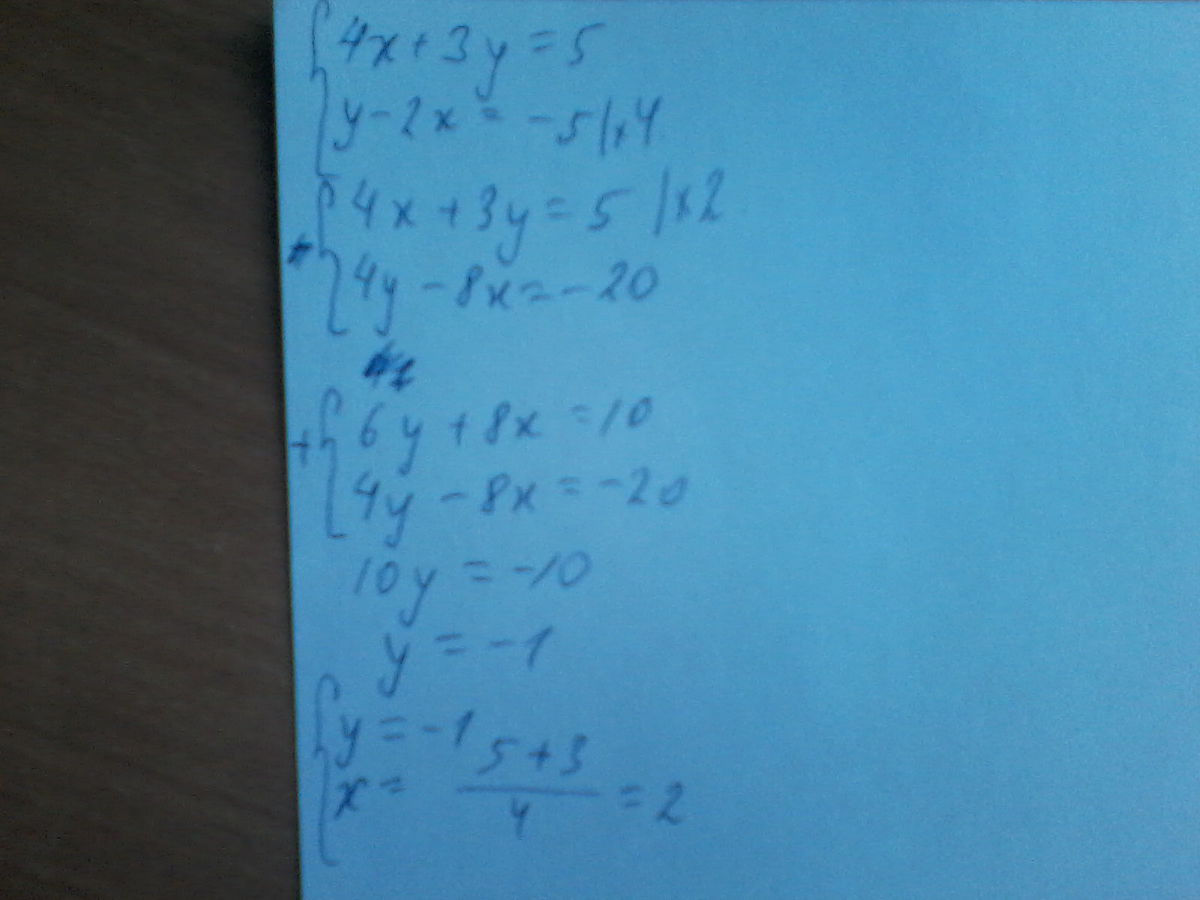 4x + 3y = 5
y - 2x = -5 | x 4
4x + 3y = 5 | x 2
4y - 8x = -20
+ 6y + 8x = 10
4y - 8x = -20
10y = -10
y = -1
y = -1
x = (5 + 3)/4 = 2